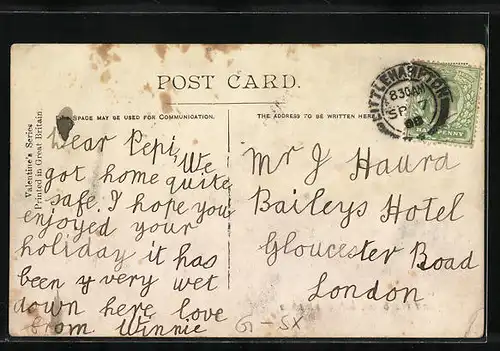 POST CARD.
THE SPACE MAY BE USED FOR COMMUNICATION.
THE ADDRESS TO BE WRITTEN HERE
Valentine's Series
Printed in Great Britain.
LITTLEHAMPTON
8 30 AM
SP 7
08
HALFPENNY
Dear Pepi, We
got home quite
safe. I hope you
enjoyed your
holiday it has
been y very wet
down here love
from Winnie
Mr J Haura
Baileys Hotel
Gloucester Boad
London
G - SX